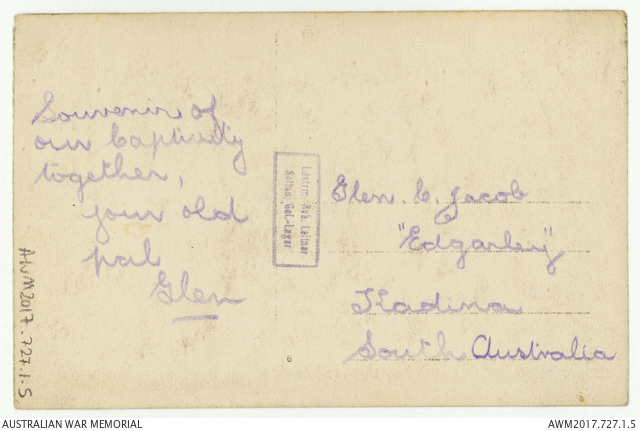 Souvenir of
our Captivity
together,
your old
pal
Glen
Glen. C. Jacob
"Edgarley"
Kadina
South Australia
Soltau, Gef.-Lager
6
AWM2017.727.1.5
AUSTRALIAN WAR MEMORIAL
AWM2017.727.1.5